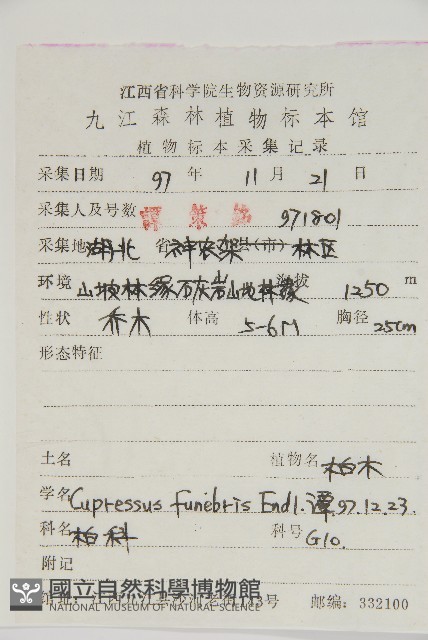 江西省科学院生物资源研究所
九江森林植物标本馆
植物标本采集记录
采集日期 97 年 11 月 21 日
采集人及号数 譚策铭 971801
采集地 湖北 省 神农架 县(市) 林区
环境 山坡林缘石灰岩山地林缘 海拔 1250 m
性状 乔木 体高 5-6M 胸径 25cm
形态特征
土名 植物名 柏木
学名 Cupressus funebris Endl. 谭97.12.23.
科名 柏科 科号 G10.
附记
國立自然科學博物館
NATIONAL MUSEUM OF NATURAL SCIENCE
邮编: 332100